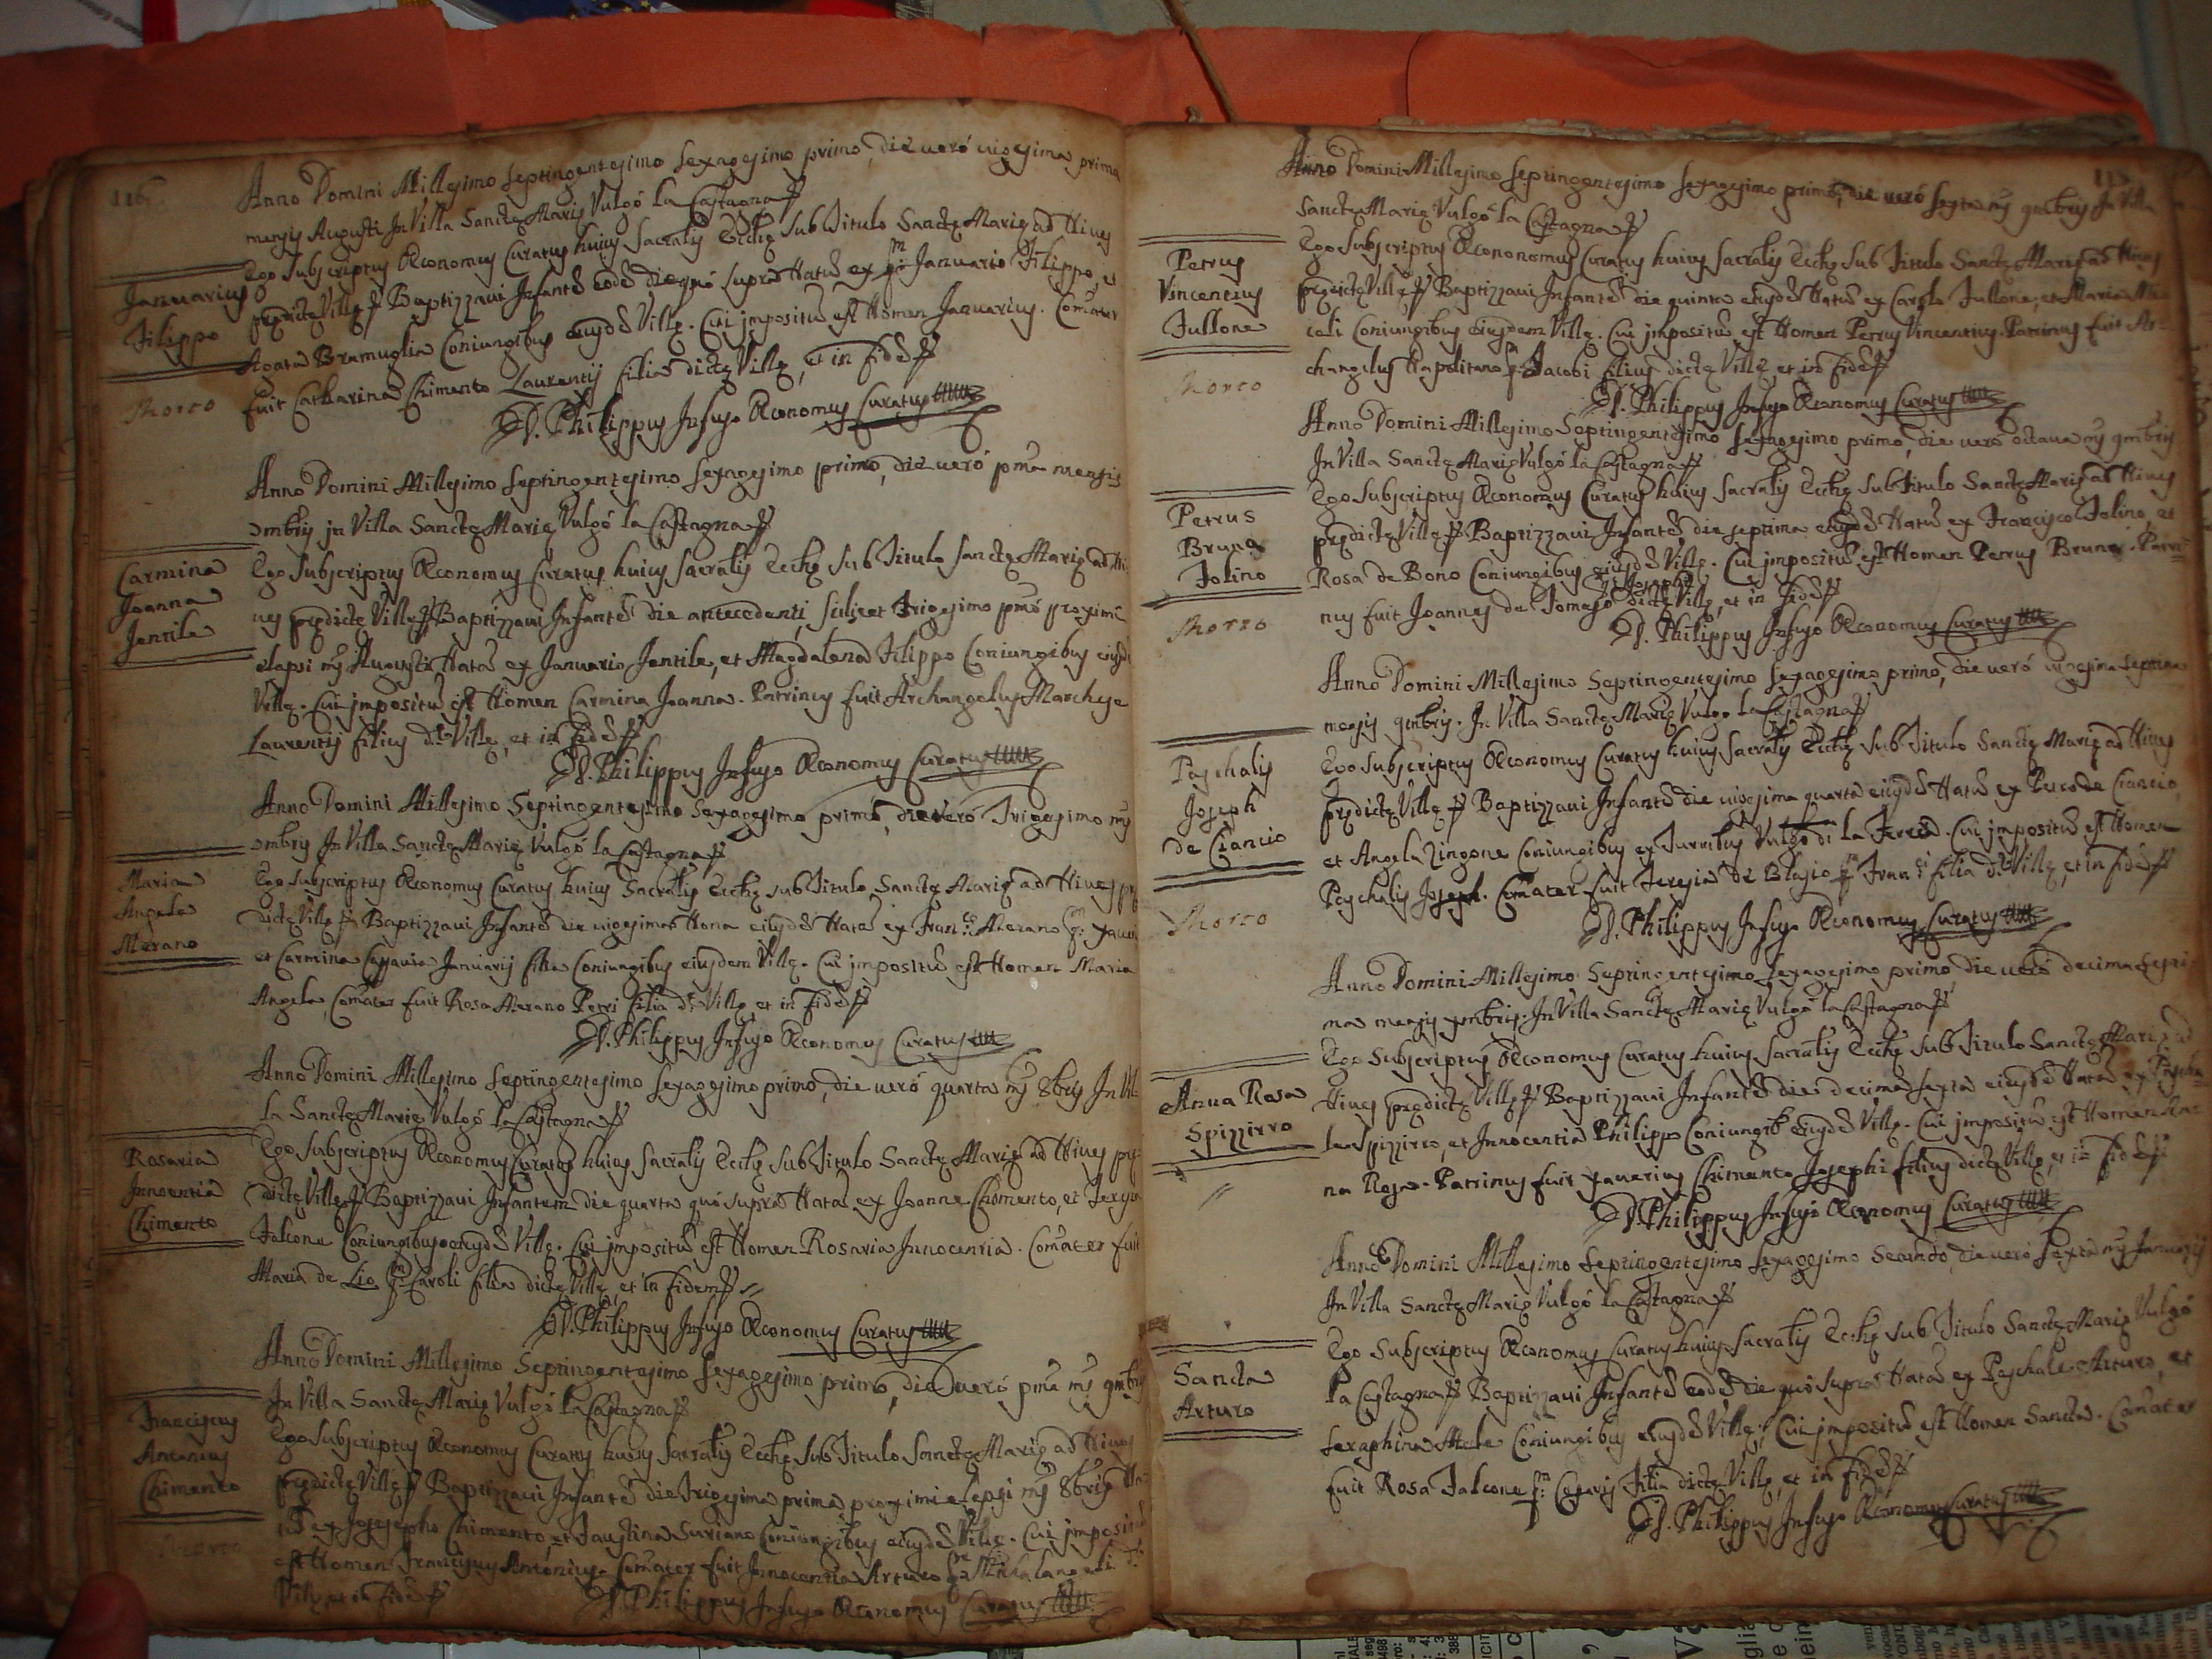 116
Anno Domini Millesimo Septingentesimo sexagesimo primo, die verò vigesima prima
mensis Augusti In Villa Sanctę Marię Vulgò la Castagna
Ego Subscriptus Œconomus Curatus huius Sacralis Eccłę sub Titulo Sanctę Marię ad Nives
prędictę Villę Baptizzavi Infantẽ eodẽ die quò suprà Natũ ex Januario Filippo, et
Agata Bramuglia Coniugibus eiusdẽ Villę. Cui impositũ est Nomen Januarius. Com̃ater
fuit Catharina Chimento Laurentij filia dictę Villę, et in fidẽ
D. Philippus Insujo Œconomus Curatus
Januarius
Filippo
Morto
Anno Domini Millesimo Septingentesimo sexagesimo primo, die verò pma mensis
7mbris in Villa Sanctę Marię Vulgò la Castagna
Ego Subscriptus Œconomus Curatus huius Sacralis Eccłę sub Titulo Sanctę Marię ad Ni-
ves prędictę Villę Baptizzavi Infantẽ die antecedenti, scilicet Trigesimo pmò proximè
elapsi ms̃ Augusti Natã ex Januario Jentile, et Magdalena Filippo Coniugibus eiusdẽ
Villę. Cui impositũ est Nomen Carmina Joanna. Patrinus fuit Archangelus Marchese
Laurentij filius dę Villę, et in fidẽ
D. Philippus Insujo Œconomus Curatus
Carmina
Joanna
Jentile
Anno Domini Millesimo Septingentesimo Sexagesimo primò, die verò Trigesimo ms̃
7mbris In Villa Sanctę Marię Vulgò la Castagna
Ego Subscriptus Œconomus Curatus huius Sacralis Eccłę sub Titulo Sanctę Marię ad Nives prę
dictę Villę Baptizzavi Infantẽ die vigesima Nona eiusdẽ Natã ex Franco Merano
et Carmina Januarij filia Coniugibus eiusdem Villę. Cui impositũ est Nomen Maria
Angela, Com̃ater fuit Rosa Merano Petri filia dę Villę, et in fidẽ
D. Philippus Insujo Œconomus Curatus
Maria
Angela
Merano
Anno Domini Millesimo Septingentesimo sexagesimo primò, die verò quarta ms̃ 8bris In Vil-
la Sanctę Marię Vulgò la Castagna
Ego Subscriptus Œconomus Curatus huius Sacralis Eccłę sub Titulo Sanctę Marię ad Nives prę-
dictę Villę Baptizzavi Infantem die quarta quò suprà Natã ex Joanne Chimento, et Teresia
Falcone Coniugibus eiusdẽ Villę. Cui impositũ est Nomen Rosaria Innocentia. Com̃ater fuit
Maria de Lio qm̃ Caroli filia dictę Villę, et in fidem
D. Philippus Insujo Œconomus Curatus
Rosaria
Innocentia
Chimento
Anno Domini Millesimo Septingentesimo sexagesimo primò, die verò pma ms̃ 9mbris
In Villa Sanctę Marię Vulgò la Castagna
Ego Subscriptus Œconomus Curatus huius Sacralis Eccłę sub Titulo Sanctę Marię ad Nives
prędictę Villę Baptizzavi Infantẽ die Trigesima prima proximi elapsi ms̃ 8bris Na-
tũ ex Josepho Chimento, et Faustina Suriano Coniugibus eiusdẽ Villę. Cui impositũ
est Nomen Franciscus Antonius. Com̃ater fuit Innocentia Arturo qm̃ Michalangeli dę
Villę, et in fidẽ
D. Philippus Insujo Œconomus Curatus
Franciscus
Antonius
Chimento
Morto
Anno Domini Millesimo Septingentesimo sexagesimo primò, die verò sexta ms̃ 9mbris In Villa
Sanctę Marię Vulgò la Castagna
Ego Subscriptus Œconomus Curatus huius Sacralis Eccłę sub Titulo Sanctę Marię ad Nives
prędictę Villę Baptizzavi Infantẽ die quinta eiusdẽ Natũ ex Carolo Fullone, et Maria
Coniugibus eiusdem Villę. Cui impositũ est Nomen Petrus Vincentius. Patrinus fuit Ar-
changelus Napolitano qm̃ Jacobi filius dictę Villę, et in fidẽ
D. Philippus Insujo Œconomus Curatus
Petrus
Vincentius
Fullone
Morto
Anno Domini Millesimo Septingentesimo sexagesimo primo, die verò octava ms̃ 9mbris
In Villa Sanctę Marię Vulgò la Castagna
Ego Subscriptus Œconomus Curatus huius Sacralis Eccłę sub Titulo Sanctę Marię ad Nives
prędictę Villę Baptizzavi Infantẽ die septima eiusdẽ Natũ ex Francisco Folino, et
Rosa de Bono Coniugibus eiusdẽ Villę. Cui impositũ est Nomen Petrus Bruno. Patri-
nus fuit Joannes de Tomaso qs Josephi dictę Villę, et in fidẽ
D. Philippus Insujo Œconomus Curatus
Petrus
Bruno
Folino
Morto
Anno Domini Millesimo Septingentesimo sexagesimo primo, die verò vigesima septima
mensis 9mbris. In Villa Sanctę Marię Vulgò la Castagna
Ego Subscriptus Œconomus Curatus huius Sacralis Eccłę sub Titulo Sanctę Marię ad Nives
prędictę Villę Baptizzavi Infantẽ die vigesima quarta eiusdẽ Natũ ex Petro de Ciancio
et Angela Zingone Coniugibus ex Turribus Vulgò di la. Cui impositũ est Nomen
Paschalis Joseph. Com̃ater fuit Teresia de Blasio qm̃ Franci filia dę Villę, et in fidẽ
D. Philippus Insujo Œconomus Curatus
Paschalis
Joseph
de Ciancio
Morto
Anno Domini Millesimo Septingentesimo sexagesimo primo die verò decima septi-
ma mensis xmbris. In Villa Sanctę Marię Vulgò la Castagna
Ego Subscriptus Œconomus Curatus huius Sacralis Eccłę sub Titulo Sanctę Marię ad
Nives prędictę Villę Baptizzavi Infantẽ die decima sexta eiusdẽ Natã ex Pascha-
le Spizzirro, et Innocentia Philippo Coniugib. eiusdẽ Villę. Cui impositũ est Nomen An-
na Rosa. Patrinus fuit Xaverius Chimento Josephi filius dictę Villę, et in fidẽ
D. Philippus Insujo Œconomus Curatus
Anna Rosa
Spizzirro
Anno Domini Millesimo Septingentesimo sexagesimo Secundo, die verò sexta ms̃ Januarij
In Villa Sanctę Marię Vulgò la Castagna
Ego Subscriptus Œconomus Curatus huius Sacralis Eccłę sub Titulo Sanctę Marię Vulgò
la Castagna Baptizzavi Infantẽ eodẽ die quò suprà Natã ex Paschale Arturo, et
Seraphina Mele Coniugibus eiusdẽ Villę; Cui impositũ est Nomen Sancta. Com̃ater
fuit Rosa Falcone qm̃ Cesaris filia dictę Villę, et in fidẽ
D. Philippus Insujo Œconomus Curatus
Sancta
Arturo